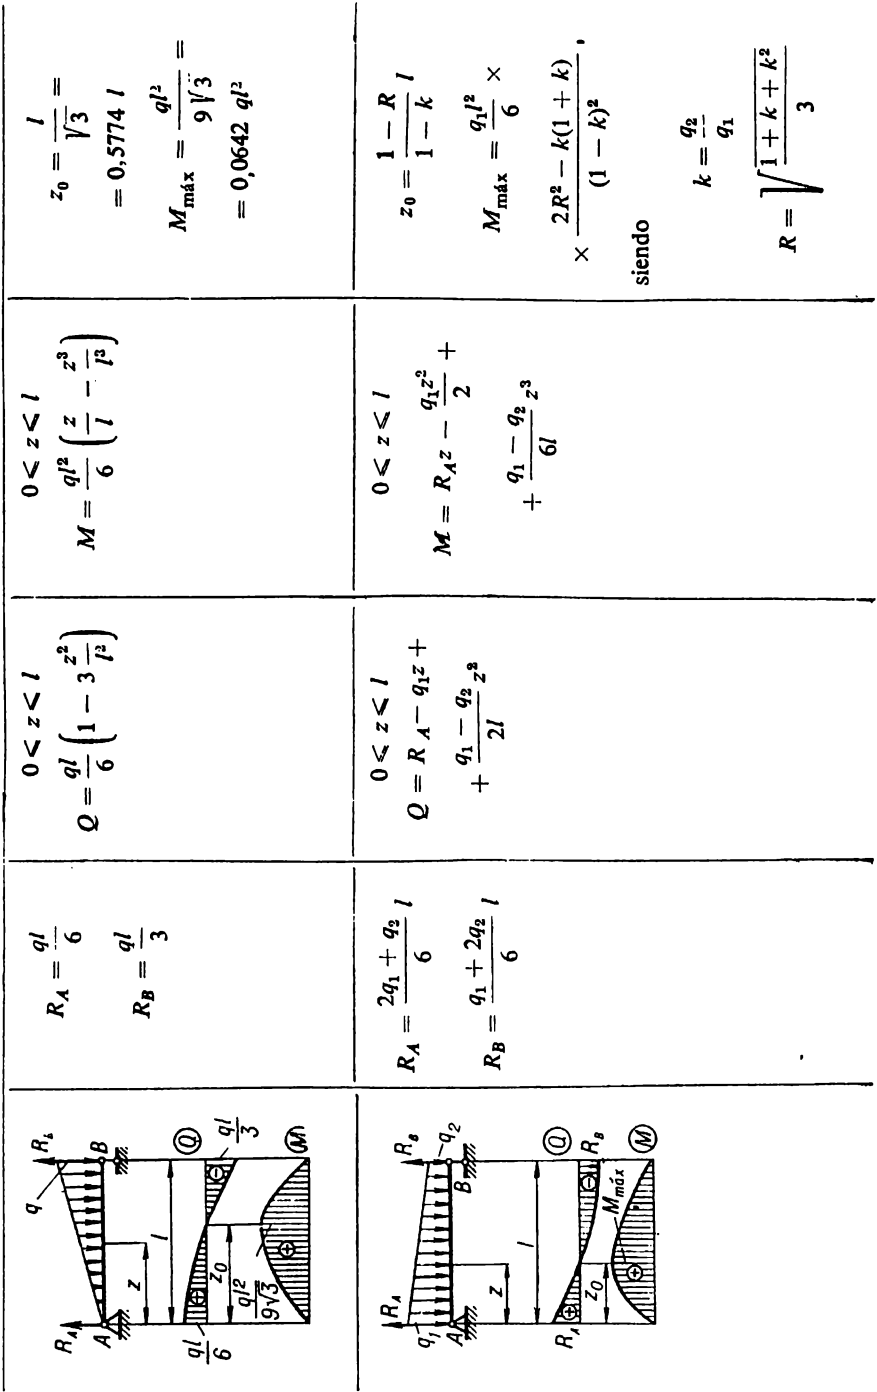 R_A q R_b
A B
z
l
Q
ql/6 z_0 ql/3
ql²/9√3
M
R_A = ql/6
R_B = ql/3
0 ⩽ z ⩽ l
Q = ql/6 (1 − 3 z²/l²)
0 ⩽ z ⩽ l
M = ql²/6 (z/l − z³/l³)
z_0 = l/√3 =
= 0,5774 l
M_máx = ql²/9√3 =
= 0,0642 ql²
R_A R_B
q_1 q_2
A B
z
l
Q
R_A z_0 R_B
M_máx
M
R_A = (2q_1 + q_2)/6 l
R_B = (q_1 + 2q_2)/6 l
0 ⩽ z ⩽ l
Q = R_A − q_1z +
+ (q_1 − q_2)/2l z²
0 ⩽ z ⩽ l
M = R_A z − q_1z²/2 +
+ (q_1 − q_2)/6l z³
z_0 = (1 − R)/(1 − k) l
M_máx = q_1l²/6 ×
× (2R² − k(1 + k))/(1 − k)² ,
siendo
k = q_2/q_1
R = √((1 + k + k²)/3)